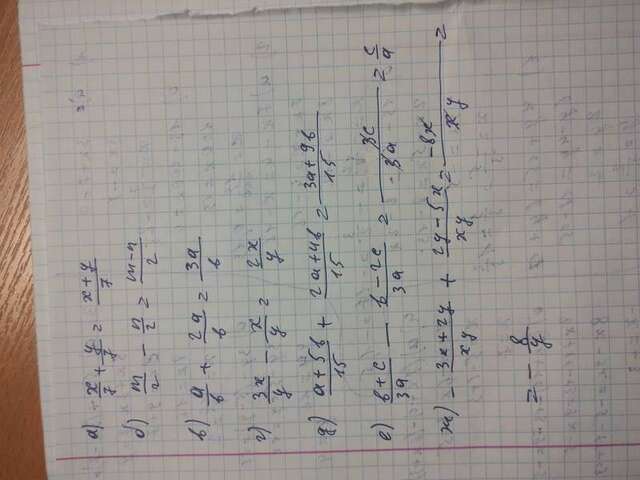 а) x/7 + y/7 = x+y/7
б) m/2 - n/2 = m-n/2
в) a/b + 2a/b = 3a/b
г) 3x/y - x/y = 2x/y
д) a+5b/15 + 2a+4b/15 = 3a+9b/15
е) b+c/3a - b-2c/3a = 3c/3a = c/a
ж) - 3x+2y/xy + 2y-5x/xy = -8x/xy =
= - 8/y